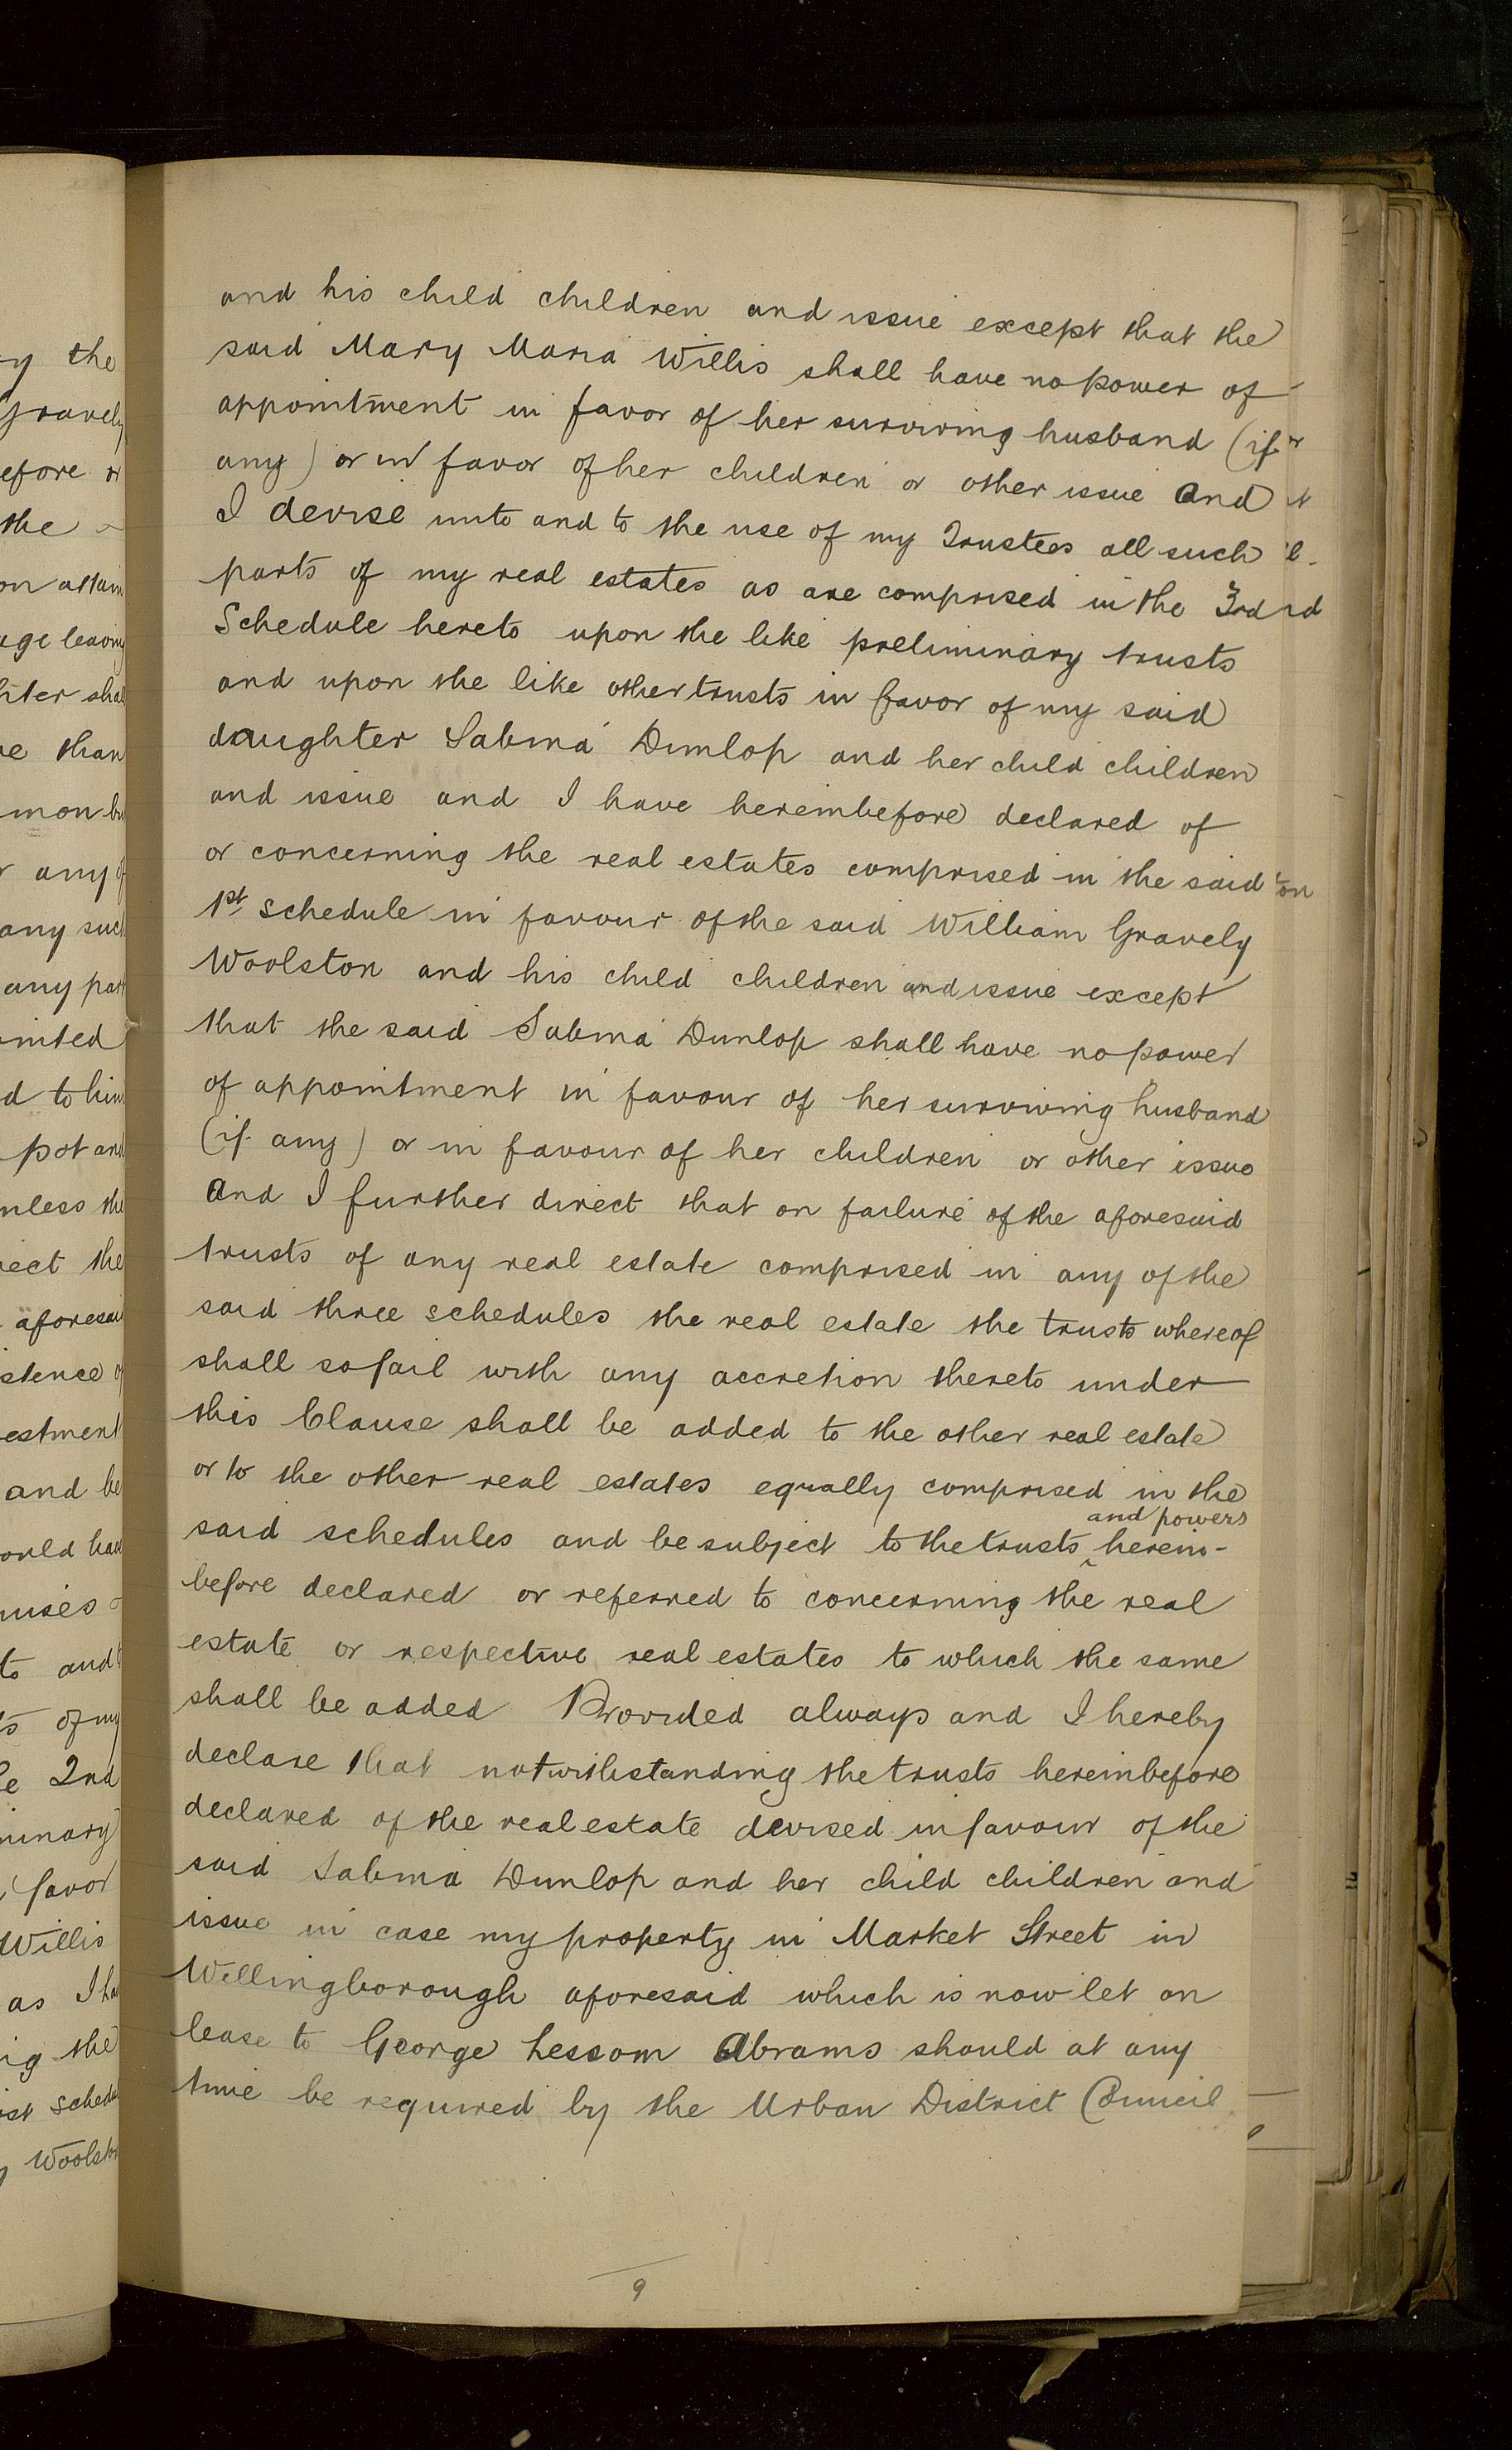 and his child children and issue except that the
said Mary Maria Willis shall have no power of
appointment in favor of her surviving husband (if
any) or in favor of her children or other issue And
I devise unto and to the use of my Trustees all such
parts of my real estates as are comprised in the 3rd
Schedule hereto upon the like preliminary trusts
and upon the like other trusts in favor of my said
daughter Sabina Dunlop and her child children
and issue and I have hereinbefore declared of
or concerning the real estates comprised in the said
1st schedule in favour of the said William Gravely
Woolston and his child children and issue except
that the said Sabina Dunlop shall have no power
of appointment in favour of her surviving husband
(if any) or in favour of her children or other issue
And I further direct that on failure of the aforesaid
trusts of any real estate comprised in any of the
said three schedules the real estate the trusts whereof
shall so fail with any accretion thereto under
this Clause shall be added to the other real estate
or to the other real estates equally comprised in the
and powers
said schedules and be subject to the trusts ^ herein-
before declared or referred to concerning the real
estate or respective real estates to which the same
shall be added Provided always and I hereby
declare that notwithstanding the trusts hereinbefore
declared of the real estate devised in favour of the
said Sabina Dunlop and her child children and
issue in case my property in Market Street in
Wellingborough aforesaid which is now let on
lease to George Lessom Abrams should at any
time be required by the Urban District Council
9
y the
Gravely
efore or
the
on attain
age leaving
hter shal
e than
mon bu
r any of
any such
any part
ointed
d to him
pot and
nless the
ject the
aforesai
stence of
estment
and be
ould hav
to and
ts of my
e 2nd
minary
favor
Willis
as I ha
ng the
1st schedu
Woolsto